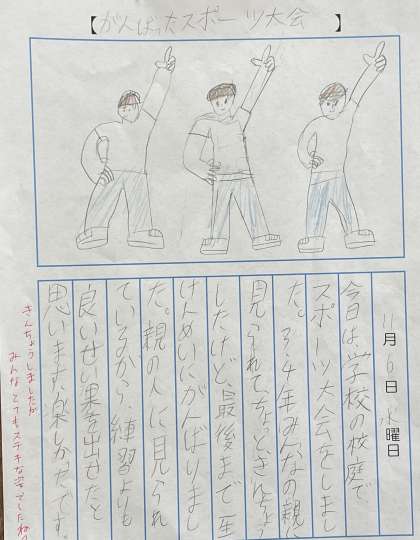 【がんばったスポーツ大会】
11月6日水曜日
今日は、学校の校庭で
スポーツ大会をしまし
た。3・4年みんなの親に
見られてちょっときんちょう
したけど、最後まで一生
けんめいにがんばりまし
た。親の人に見られ
ているから、練習よりも
良いせい果を出せたと
思います。楽しかったです。
きんちょうしましたが
みんなとてもステキな姿でしたね。